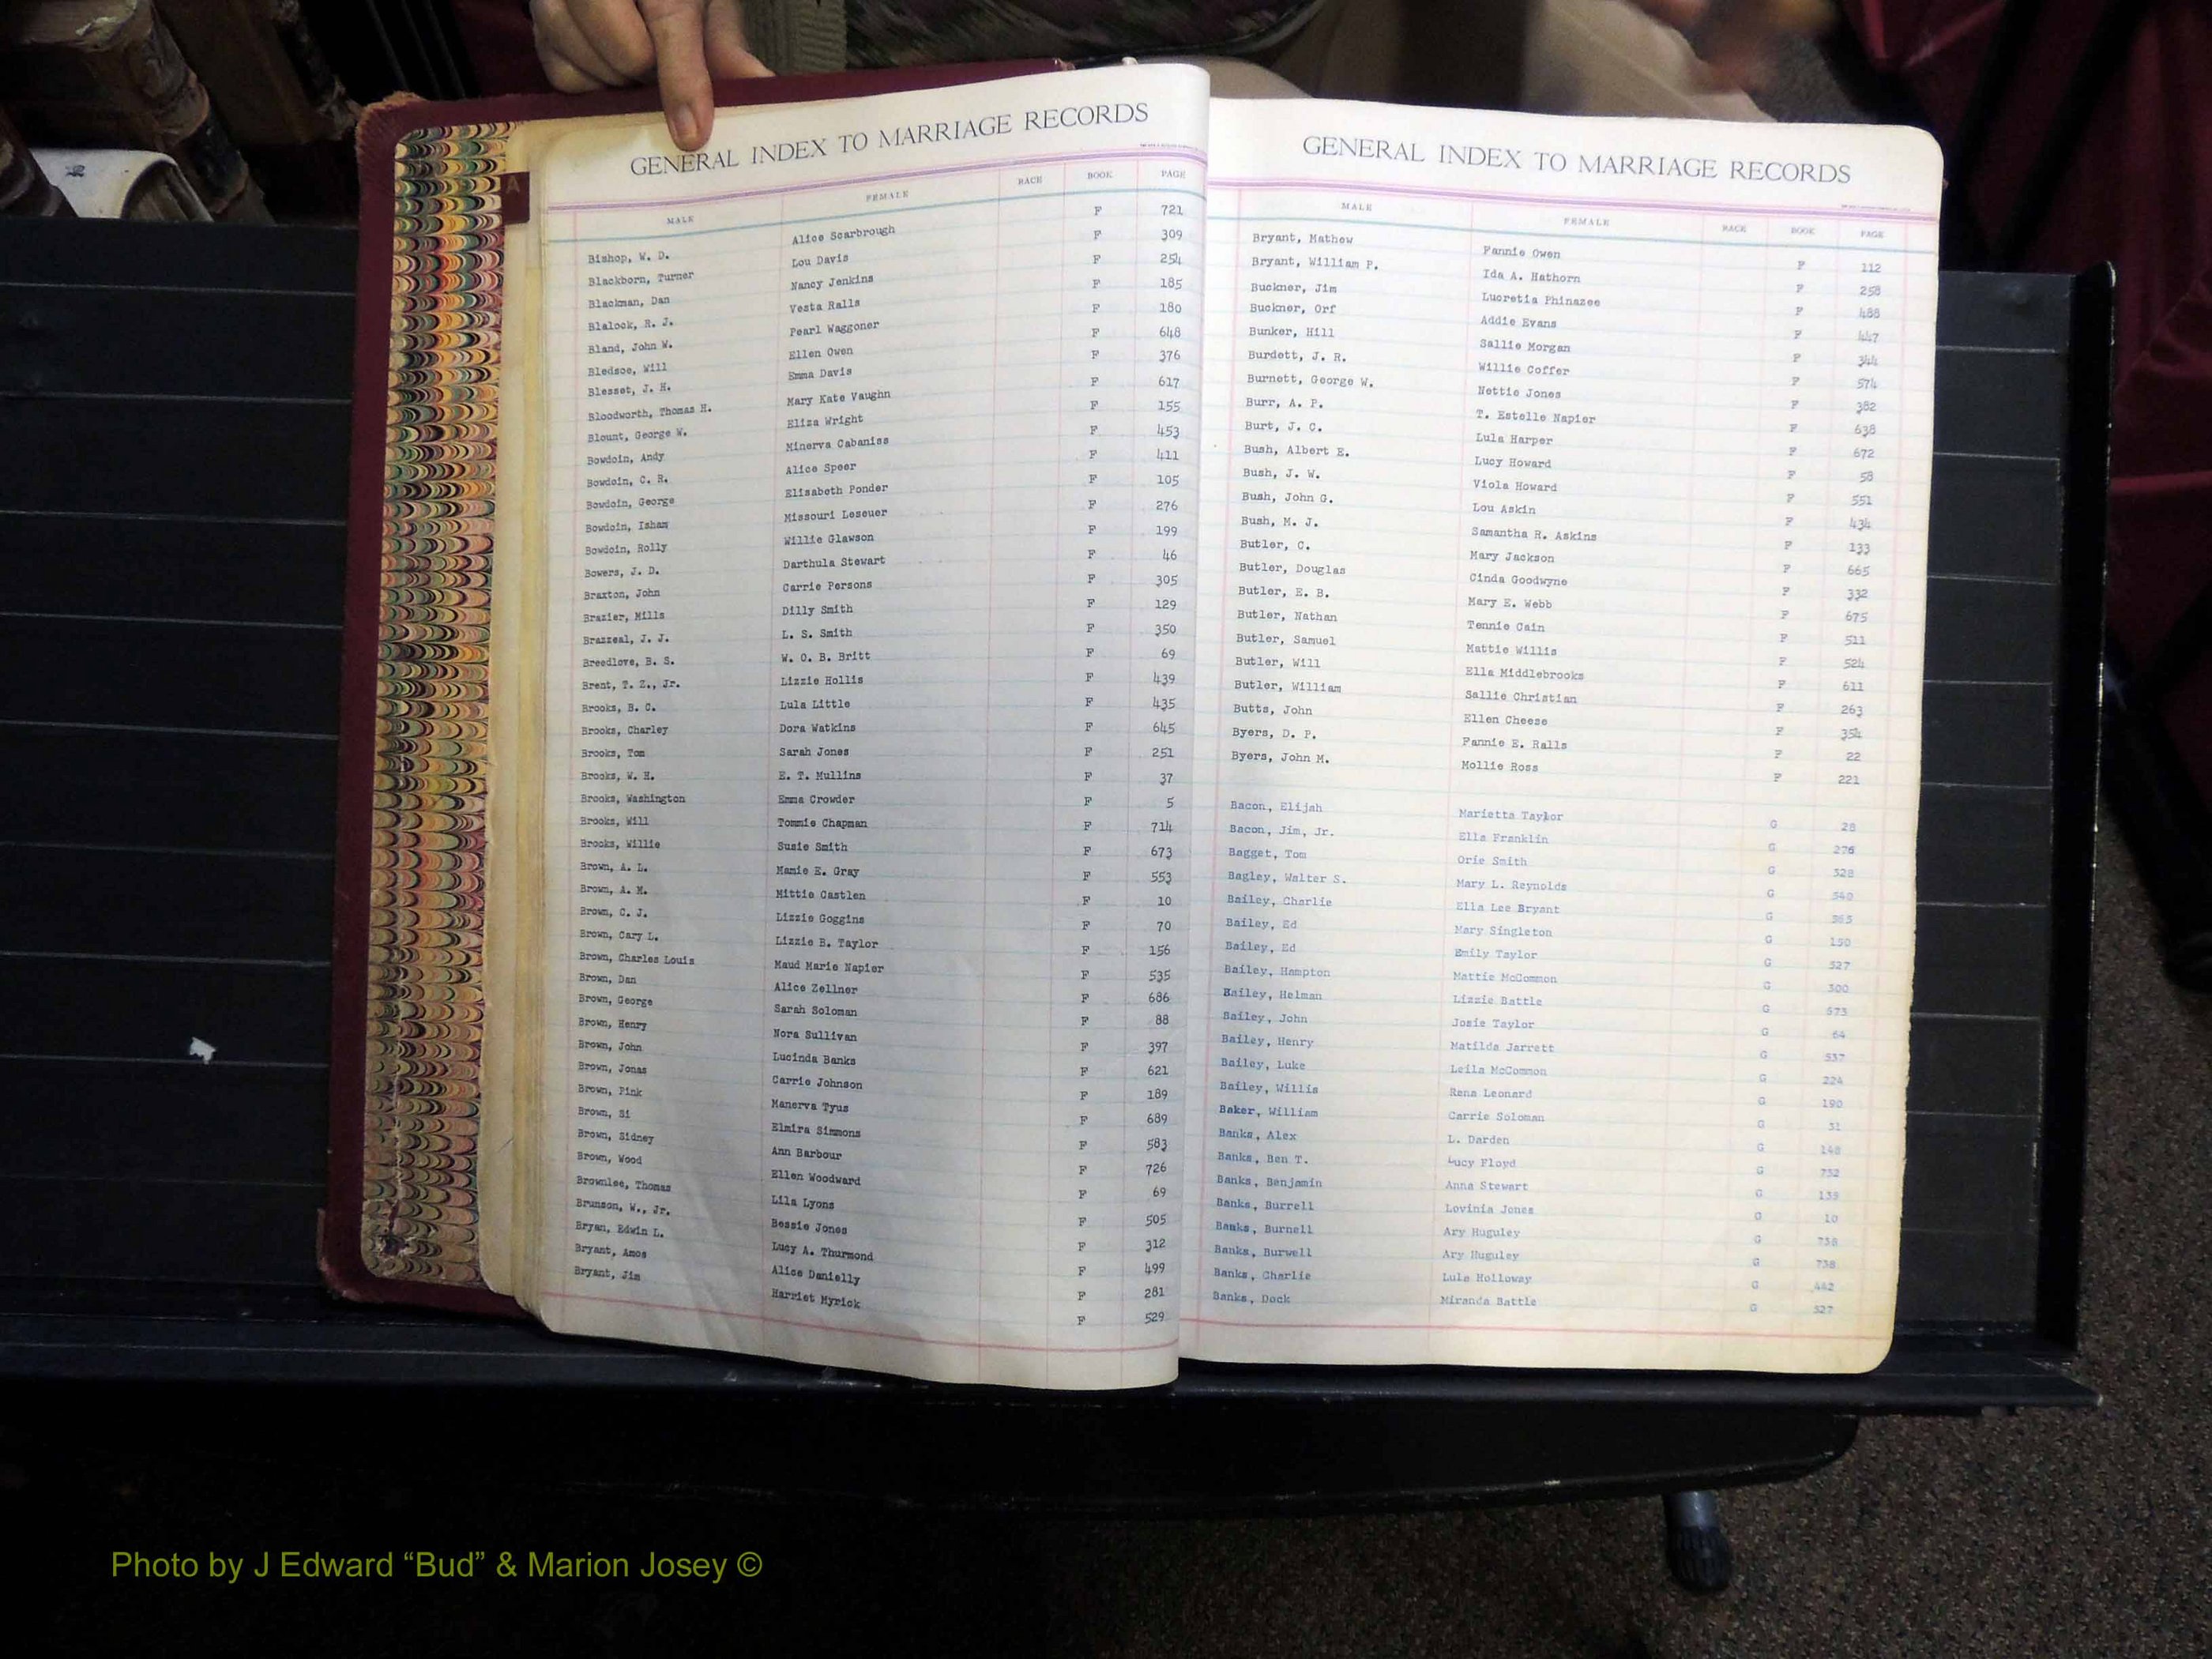 GENERAL INDEX TO MARRIAGE RECORDS
MALE FEMALE RACE BOOK PAGE
Bishop, W. D. Alice Scarbrough F 721
Blackborn, Turner Lou Davis F 309
Blackman, Dan Nancy Jenkins F 254
Blalock, R. J. Vesta Ralls F 185
Bland, John W. Pearl Waggoner F 180
Bledsoe, Will Ellen Owen F 648
Blesset, J. H. Emma Davis F 376
Bloodworth, Thomas H. Mary Kate Vaughn F 617
Blount, George W. Eliza Wright F 155
Bowdoin, Andy Minerva Cabaniss F 453
Bowdoin, C. R. Alice Speer F 411
Bowdoin, George Elisabeth Ponder F 105
Bowdoin, Isham Missouri Leseuer F 276
Bowdoin, Rolly Willie Glawson F 199
Bowers, J. D. Darthula Stewart F 46
Braxton, John Carrie Persons F 305
Brazier, Mills Dilly Smith F 129
Brazzeal, J. J. L. S. Smith F 350
Breedlove, B. S. W. O. B. Britt F 69
Brent, T. Z., Jr. Lizzie Hollis F 439
Brooks, B. C. Lula Little F 435
Brooks, Charley Dora Watkins F 645
Brooks, Tom Sarah Jones F 251
Brooks, W. H. E. T. Mullins F 37
Brooks, Washington Emma Crowder F 5
Brooks, Will Tommie Chapman F 714
Brooks, Willie Susie Smith F 673
Brown, A. L. Mamie E. Gray F 553
Brown, A. M. Mittie Castlen F 10
Brown, C. J. Lizzie Goggins F 70
Brown, Cary L. Lizzie B. Taylor F 156
Brown, Charles Louis Maud Marie Napier F 535
Brown, Dan Alice Zellner F 686
Brown, George Sarah Soloman F 88
Brown, Henry Nora Sullivan F 397
Brown, John Lucinda Banks F 621
Brown, Jonas Carrie Johnson F 189
Brown, Pink Manerva Tyus F 689
Brown, Si Elmira Simmons F 583
Brown, Sidney Ann Barbour F 726
Brown, Wood Ellen Woodward F 69
Brownlee, Thomas Lila Lyons F 505
Brunson, W., Jr. Bessie Jones F 312
Bryan, Edwin L. Lucy A. Thurmond F 499
Bryant, Amos Alice Danielly F 281
Bryant, Jim Harriet Myrick F 529
GENERAL INDEX TO MARRIAGE RECORDS
MALE FEMALE RACE BOOK PAGE
Bryant, Mathew Fannie Owen F 112
Bryant, William P. Ida A. Hathorn F 258
Buckner, Jim Lucretia Phinazee F 488
Buckner, Orf Addie Evans F 447
Bunker, Hill Sallie Morgan F 344
Burdett, J. R. Willie Coffer F 574
Burnett, George W. Nettie Jones F 382
Burr, A. P. T. Estelle Napier F 638
Burt, J. C. Lula Harper F 672
Bush, Albert E. Lucy Howard F 58
Bush, J. W. Viola Howard F 551
Bush, John G. Lou Askin F 434
Bush, M. J. Samantha R. Askins F 133
Butler, C. Mary Jackson F 665
Butler, Douglas Cinda Goodwyne F 332
Butler, E. B. Mary E. Webb F 675
Butler, Nathan Tennie Cain F 511
Butler, Samuel Mattie Willis F 524
Butler, Will Ella Middlebrooks F 611
Butler, William Sallie Christian F 263
Butts, John Ellen Cheese F 354
Byers, D. P. Fannie E. Ralls F 22
Byers, John M. Mollie Ross F 221
Bacon, Elijah Marietta Taylor G 28
Bacon, Jim, Jr. Ella Franklin G 276
Bagget, Tom Orie Smith G 328
Bagley, Walter S. Mary L. Reynolds G 540
Bailey, Charlie Ella Lee Bryant G 365
Bailey, Ed Mary Singleton G 150
Bailey, Ed Emily Taylor G 527
Bailey, Hampton Mattie McCommon G 300
Bailey, Helman Lizzie Battle G 573
Bailey, John Josie Taylor G 64
Bailey, Henry Matilda Jarrett G 537
Bailey, Luke Leila McCommon G 224
Bailey, Willis Rena Leonard G 190
Baker, William Carrie Soloman G 31
Banks, Alex L. Darden G 148
Banks, Ben T. Lucy Floyd G 732
Banks, Benjamin Anna Stewart G 139
Banks, Burrell Lovinia Jones G 10
Banks, Burnell Ary Huguley G 738
Banks, Burwell Ary Huguley G 738
Banks, Charlie Lula Holloway G 442
Banks, Dock Miranda Battle G 327
Photo by J Edward “Bud” & Marion Josey ©